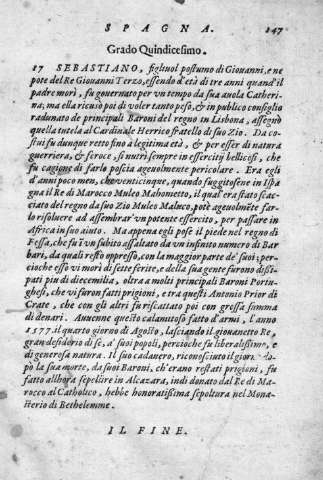 SPAGNA. 147
Grado Quindicesimo.
17 SEBASTIANO, figliuol postumo di Giouanni, e ne
pote del Re Giouanni Terzo, essendo d'età di tre anni quand'il
padre morì, fu gouernato per vn tempo da sua auola Catheri-
na; ma ella ricusò poi di voler tanto peso, & in publico consiglio
radunato de principali Baroni del regno in Lisbona, assegnò
quella tutela al Cardinale Herrico fratello di suo Zio. Da co-
stui fu dunque retto fino a legitima età, & per esser di natura
guerriera, & feroce, si nutrì sempre in essercitij bellicosi, che
fu cagione di farlo poscia ageuolmente pericolare. Era egli
d'anni poco men, che venticinque, quando fuggitosene in Ispa
gna il Re di Marocco Muleo Mahometto, il qual'era stato scac
ciato del regno da suo Zio Muleo Maluco, potè ageuolmẽte far
lo risoluere ad assembrar vn potente essercito, per passare in
Africa in suo aiuto. Ma appena egli pose il piede nel regno di
Fessa, che fu ĩ vn subito assaltato da vn infinito numero di Bar
bari, da quali restò oppresso, con la maggior parte de' suoi; per-
cioche esso vi morì di sette ferite, e della sua gente furono dissi-
pati piu di diecemilia, oltra a molti principali Baroni Portu-
ghesi, che vi furon fatti prigioni, e tra questi Antonio Prior di
Crate, che con gli altri fu riscattato poi con grossa somma
di denari. Auuenne questo calamitoso fatto d'armi, l'anno
1577. il quarto giorno di Agosto, lasciando il giouanetto Re,
gran desiderio di se, a' suoi popoli, percioche fu liberalissimo, e
di generosa natura. Il suo cadauero, riconosciuto il giorno do-
pò la sua morte, da suoi Baroni, ch'erano restati prigioni, fu
fatto allhora sepelire in Alcazara, indi donato dal Re di Ma-
rocco al Catholico, hebbe honoratissima sepoltura nel Mona-
sterio di Bethelemme.
IL FINE.